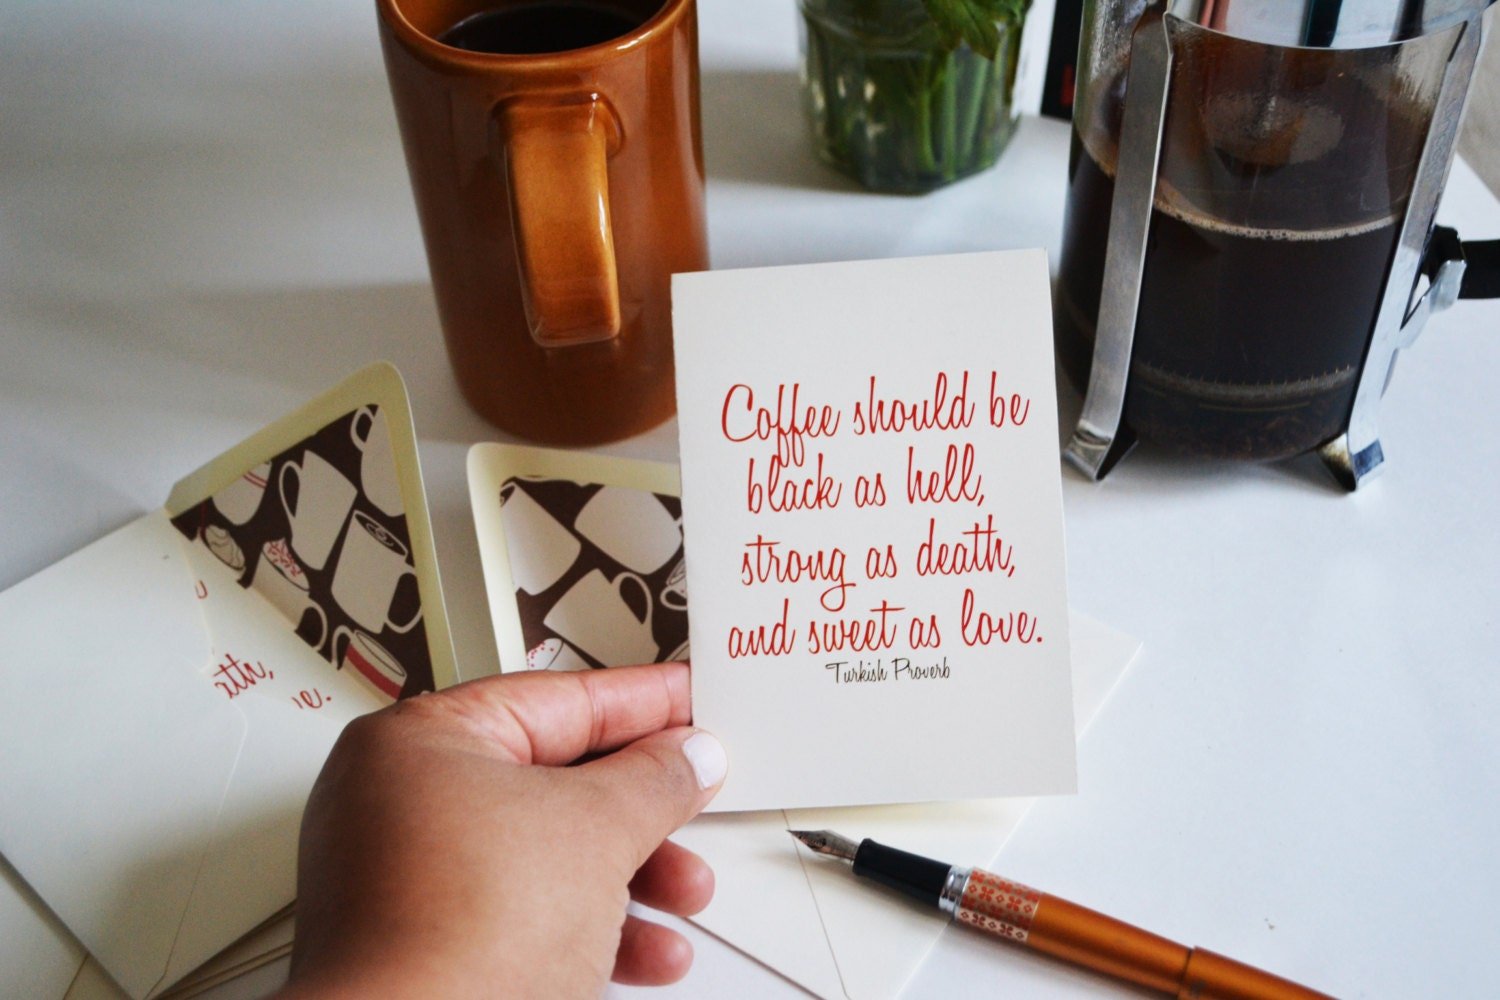 Coffee should be
black as hell,
strong as death,
and sweet as love.
Turkish Proverb